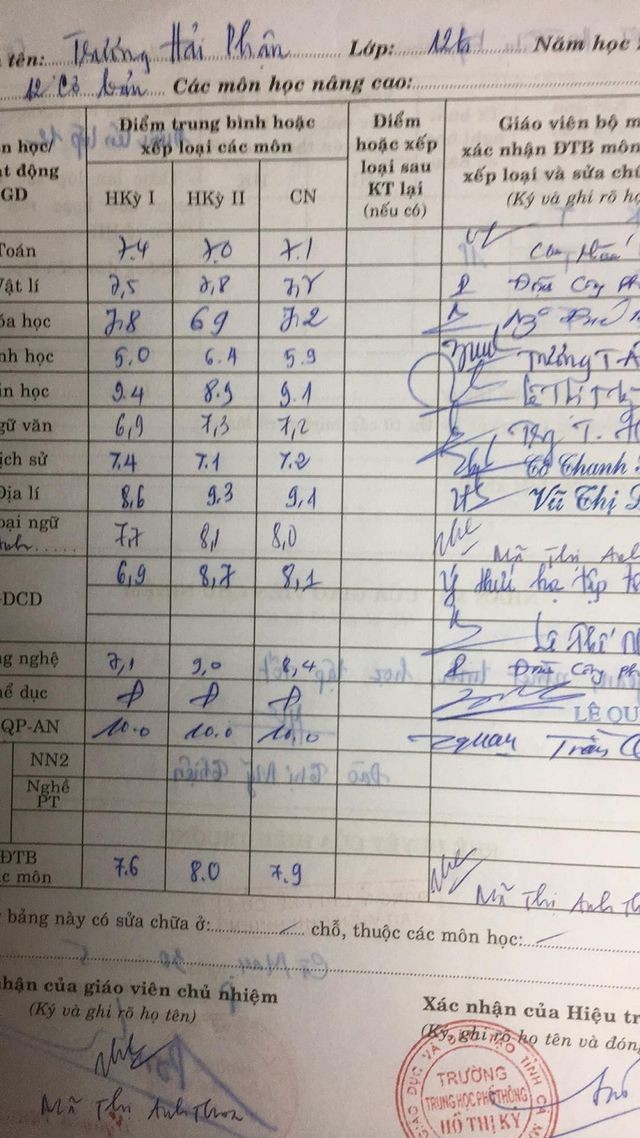 tên: Trương Hải Phận Lớp: 12 Năm học
12 Cơ bản Các môn học nâng cao:
n học/ Điểm trung bình hoặc Điểm Giáo viên bộ m
t động xếp loại các môn hoặc xếp xác nhận ĐTB môn
GD loại sau xếp loại và sửa chữ
HKỳ I HKỳ II CN KT lại (Ký và ghi rõ họ
(nếu có)
Toán 7.4 7.0 7.1
Vật lí 7,5 7,8 Công Ph
óa học 7.8 6.9 7.2
nh học 5.0 6.4 5.9 Trương T
in học 9.4 8.9 9.1 Lê Thị
gữ văn 6,9 7,3 7,2 T.
ịch sử 7.4 7.1 7.2 Thanh
Địa lí 8.6 9.3 9,1 Vũ Thị
oại ngữ 7,7 8,1 8,0
Anh..... Mã Thị Anh
DCD 6,9 8,7 8,1 Ý thức học tập tố
Lê Thế
ng nghệ 7,1 9,0 8,4 Công Ph
hể dục Đ Đ Đ
LÊ QU
QP-AN 10.0 10.0 10.0 quan Trần
NN2
Nghề
PT
ĐTB
c môn 7.6 8.0 7.9 Mã Thị Anh Tho
g bảng này có sửa chữa ở: chỗ, thuộc các môn học:
nhận của giáo viên chủ nhiệm Xác nhận của Hiệu tr
(Ký và ghi rõ họ tên) (Ký, ghi rõ họ tên và đón
Mã Thị Anh Thoa
GIÁO DỤC VÀ ĐÀO TẠO TỈNH CÀ M
TRƯỜNG
TRUNG HỌC PHỔ THÔNG
HỒ THỊ KỶ